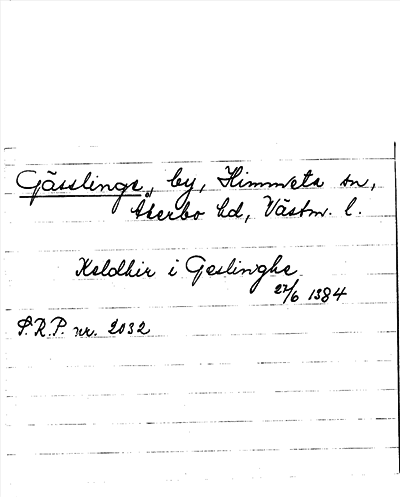 Gässlinge, by, Himmeta sn,
Åkerbo hd, Västm. l.
Keldhir i Geslinghe
27/6 1384
P.R.P. nr. 2032